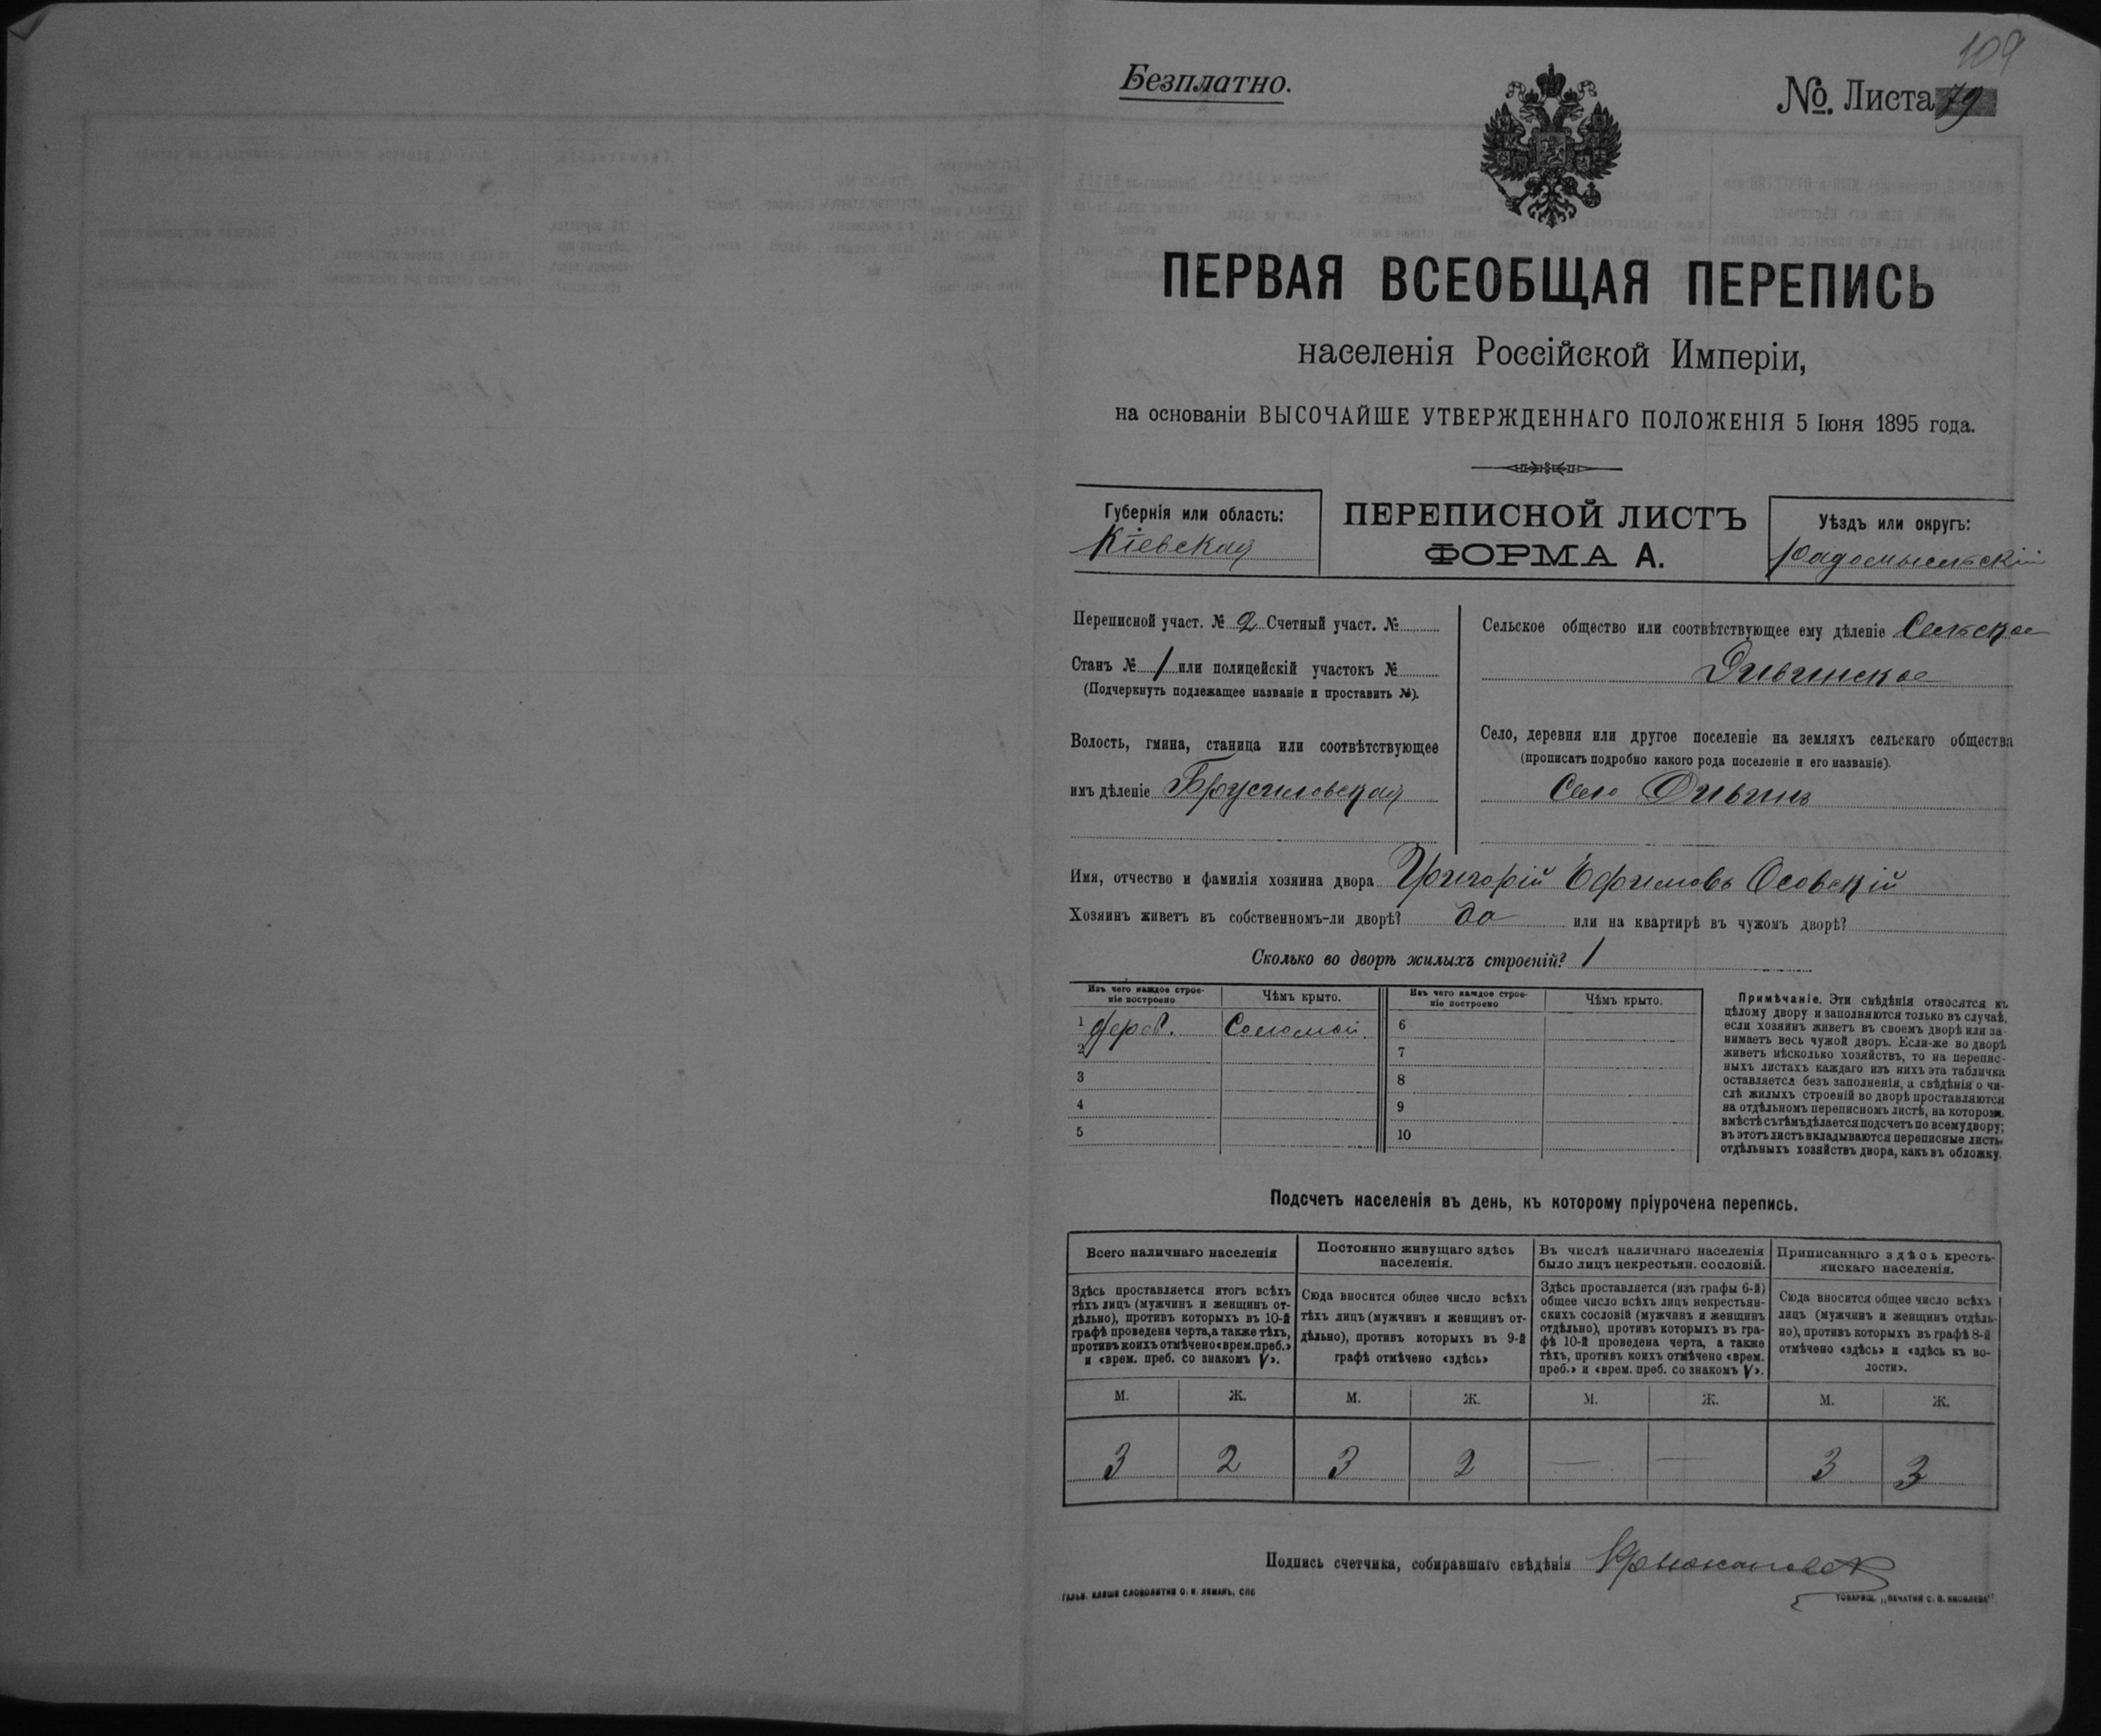 109
Безплатно.
№. Листа 79
ПЕРВАЯ ВСЕОБЩАЯ ПЕРЕПИСЬ
населенія Россійской Имперіи,
на основаніи ВЫСОЧАЙШЕ УТВЕРЖДЕННАГО ПОЛОЖЕНІЯ 5 Іюня 1895 года.
Губернія или область:
Кіевская
ПЕРЕПИСНОЙ ЛИСТЪ
ФОРМА А.
Уѣздъ или округъ:
Радомысльскій
Переписной участ. № 2 Счетный участ. №
Станъ № 1 или полицейскій участокъ №
(Подчеркнуть подлежащее названіе и проставить №).
Волость, гмина, станица или соотвѣтствующее
имъ дѣленіе Брусиловская
Сельское общество или соотвѣтствующее ему дѣленіе Сельское
Дивинское
Село, деревня или другое поселеніе на земляхъ сельскаго общества
(прописать подробно какого рода поселеніе и его названіе).
Село Дивинъ
Имя, отчество и фамилія хозяина двора Григорій Ефимовъ Осовскій
Хозяинъ живетъ въ собственномъ-ли дворѣ? да или на квартирѣ въ чужомъ дворѣ?
Сколько во дворѣ жилыхъ строеній? 1
Изъ чего каждое строе-
ніе построено
Чѣмъ крыто.
Изъ чего каждое строе-
ніе построено
Чѣмъ крыто.
1 дерев. Соломой
2
3
4
5
6
7
8
9
10
Примѣчаніе. Эти свѣдѣнія относятся къ
цѣлому двору и заполняются только въ случаѣ,
если хозяинъ живетъ въ своемъ дворѣ или за-
нимаетъ весь чужой дворъ. Если-же во дворѣ
живетъ нѣсколько хозяйствъ, то на перепис-
ныхъ листахъ каждаго изъ нихъ эта табличка
оставляется безъ заполненія, а свѣдѣнія о чи-
слѣ жилыхъ строеній во дворѣ проставляются
на отдѣльномъ переписномъ листѣ, на которомъ
вмѣстѣ съ тѣмъ дѣлается подсчетъ по всему двору;
въ этотъ листъ вкладываются переписные листы
отдѣльныхъ хозяйствъ двора, какъ въ обложку.
Подсчетъ населенія въ день, къ которому пріурочена перепись.
Всего наличнаго населенія
Здѣсь проставляется итогъ всѣхъ
тѣхъ лицъ (мужчинъ и женщинъ от-
дѣльно), противъ которыхъ въ 10-й
графѣ проведена черта, а также тѣхъ,
противъ коихъ отмѣчено «врем. преб.»
и «врем. преб. со знакомъ V».
Постоянно живущаго здѣсь
населенія.
Сюда вносится общее число всѣхъ
тѣхъ лицъ (мужчинъ и женщинъ от-
дѣльно), противъ которыхъ въ 9-й
графѣ отмѣчено «здѣсь»
Въ числѣ наличнаго населенія
было лицъ некрестьян. сословій.
Здѣсь проставляется (изъ графы 6-й)
общее число всѣхъ лицъ некрестьян-
скихъ сословій (мужчинъ и женщинъ
отдѣльно), противъ которыхъ въ гра-
фѣ 10-й проведена черта, а также
тѣхъ, противъ коихъ отмѣчено «врем.
преб.» и «врем. преб. со знакомъ V».
Приписаннаго здѣсь кресть-
янскаго населенія.
Сюда вносится общее число всѣхъ
лицъ (мужчинъ и женщинъ отдѣль-
но), противъ которыхъ въ графѣ 8-й
отмѣчено «здѣсь» и «здѣсь къ во-
лости».
М. Ж. М. Ж. М. Ж. М. Ж.
3 2 3 2 — — 3 3
Подпись счетчика, собиравшаго свѣдѣнія
ГАЛЬВ. КЛИШЕ СЛОВОЛИТНИ О. И. ЛЕМАНЪ, СПБ
ТОВАРИЩ. „ПЕЧАТНЯ С. П. ЯКОВЛЕВА"